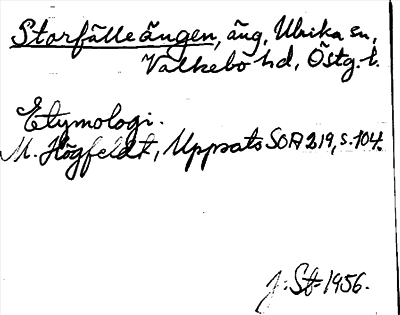 Storfälleängen, äng, Ulrika sn,
Valkebo hd, Östg. l.
Etymologi.
M. Högfeldt, Uppsats SOA 219, s. 104.
J. St 1956.